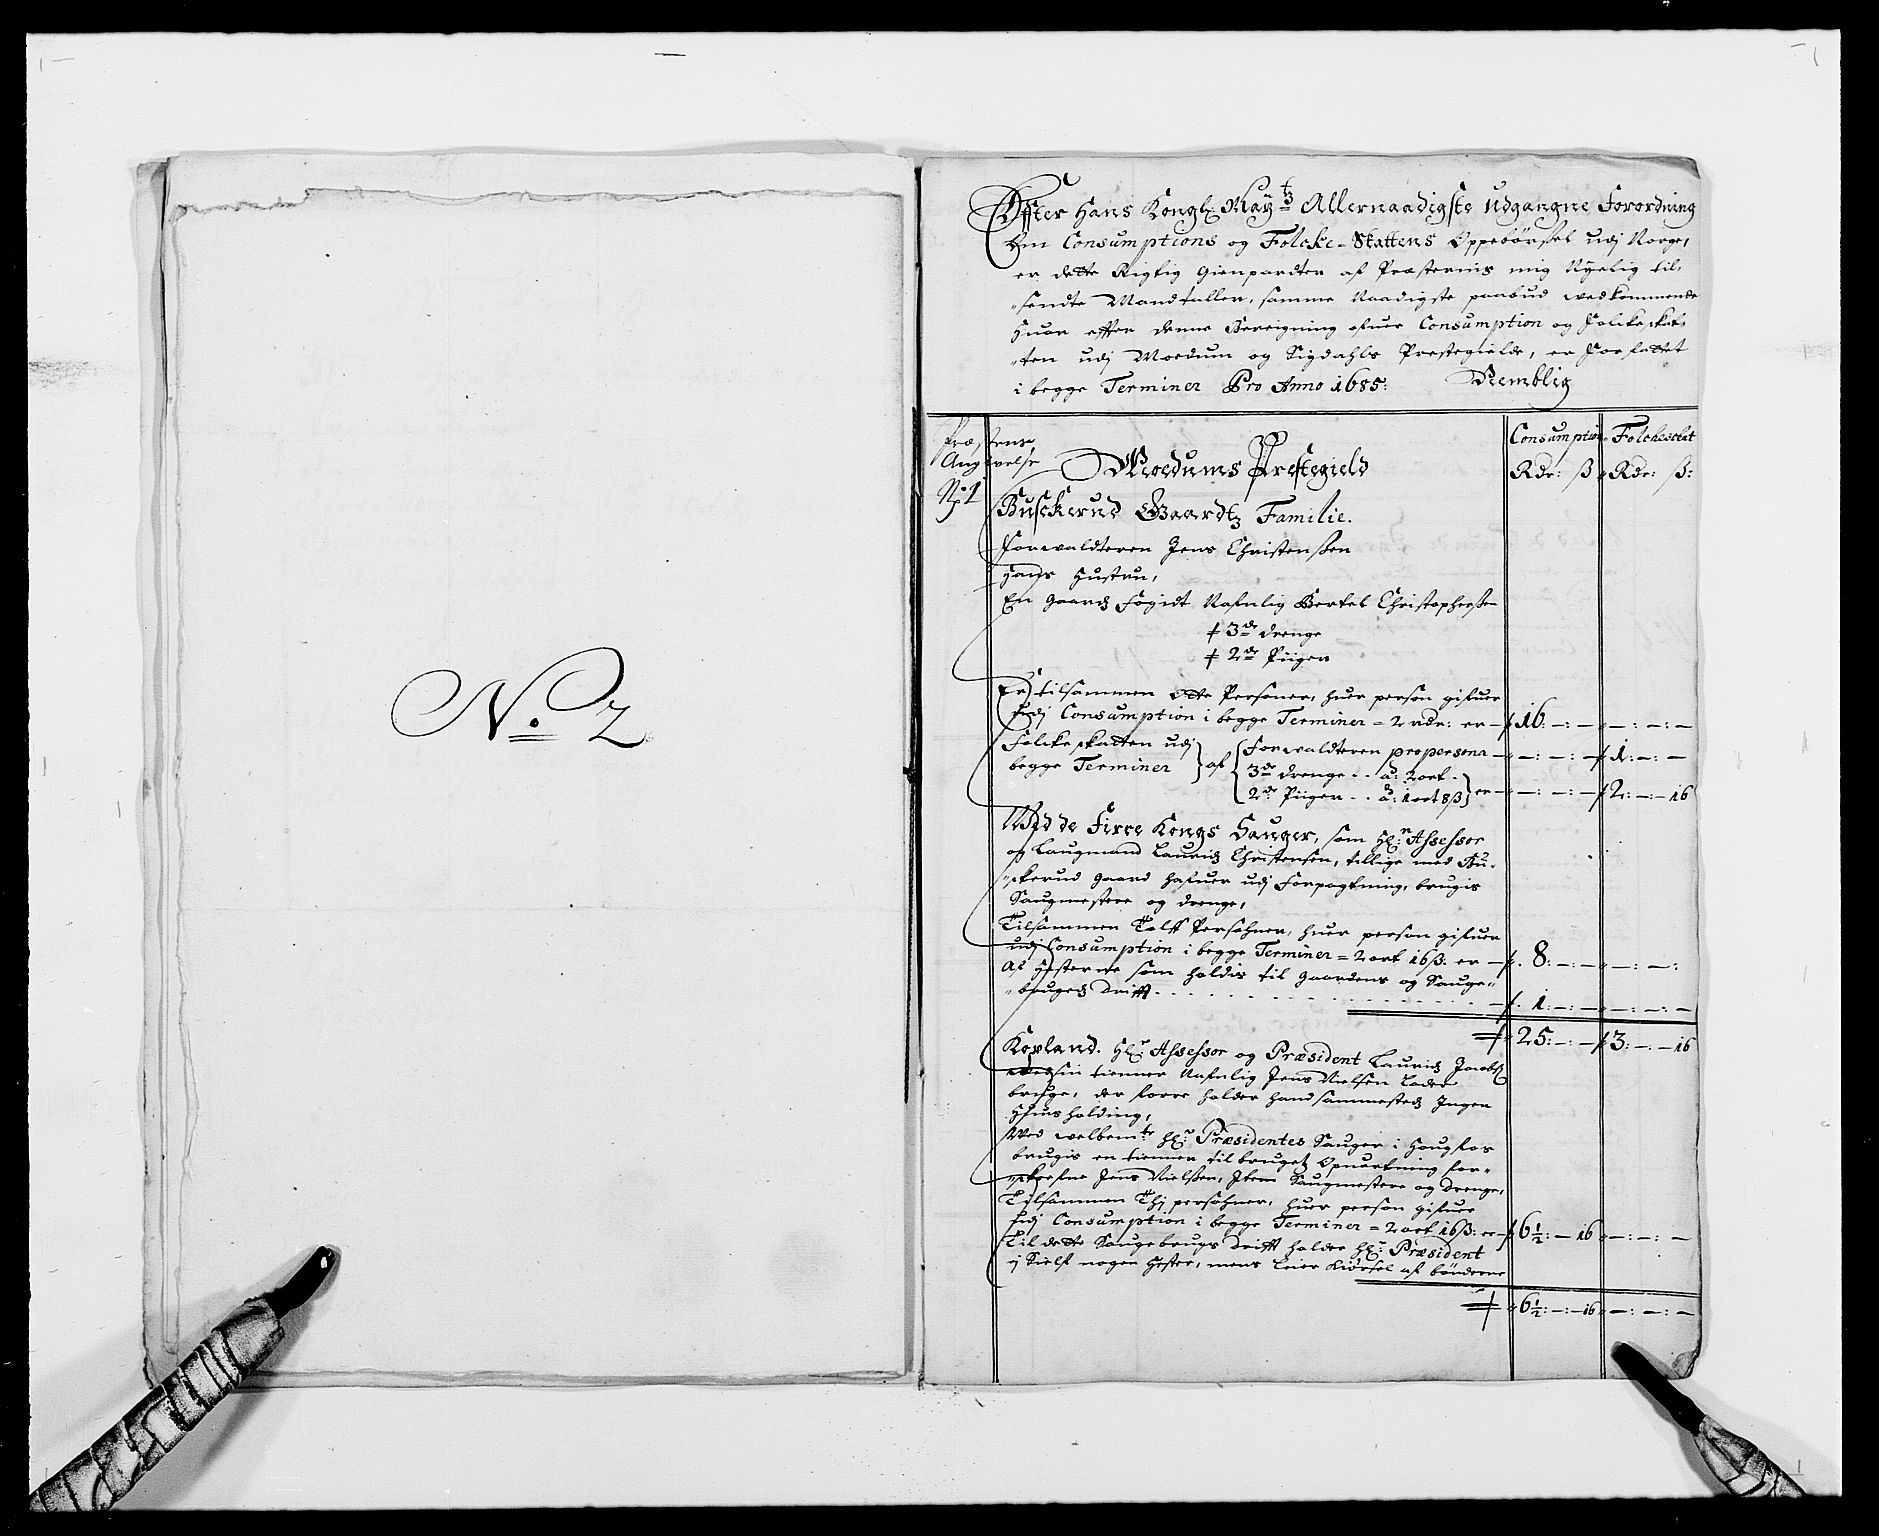 No 2
Effter Hans Kongl: May:tz Allernaadigste Udgangne Forordning
Om Consumptions og Folcke-Skattens Oppebørsel udj Norge,
er dette Rigtig Gienpardter af Præsternis mig Nyelig til-
sendte Mandtaller, samme Naadigste paabud vedkommende
Huor effter denne Bereigning ofuer Consumption og Folckeskat-
ten udj Moedum og Sigdahls Prestegielde, er Forfattet
i begge Terminer Pro Anno 1685: Nemblig
Præstens Angivelse
No: 1
Consumption Folckeschat
Rdr: ß Rdr: ß:
Moedums Prestegield
Buskerud Gaardtz Familie.
Forvaldteren Jens Christenßen
Hans Hustru,
En Gaardz Fogidt Nafnlig Bertel Christopherßen
3de drenge
2de Piiger
Er tilsammen Otte Personer, huer person gifuer
udj Consumption i begge Terminer = 2 rdr: er 16: — : —
Folckeskatten udj begge Terminer af
Forvaldteren pro persona 1: — : —
3de drenge .. a: 2 ort
2de Piiger .. a: 1 ort 8 ß er 2: — 16
Wed de Firre Kongs Sauger, som Hr: Assessor
og Laugmand Lauridz Christensen, tillige med Bu-
skerud Gaard hafuer udj Forpagtning, brugis
Saugmestere og drenge,
Tilsammen Tolff Persohner, huer person gifuer
udj Consumption i begge Terminer = 2 ort 16 ß: er 8: — : —
Af Hesterne som holdis til Gaardens og Sauge-
brugedz Drifft 1: — : —
25: — : — 3: — : — 16
Kopland. Hr: Assessor og Præsident Lauridz Jacobß
ved sin tienner Nafnlig Jens Nielsen Lader
bruge, der forre holder hand sammestedz Ingen
Huusholding,
Wed velbem:te Hr: Præsidentes Sauger i Hougfos
brugis en tienner til brugetz Opuartning for-
skrefne Jens Nielßen, Item Saugmestere og drenge,
Tilsammen Thj persohner, huer person gifuer
udj Consumption i begge Terminer = 2 ort 16 ß: er 6½: — 16
Til dette Saugebrugs Drifft holder Hr: Præsident
ej Sielf nogen Hester, mens Leier Kiørsel af bønderne
6½: — : — 16